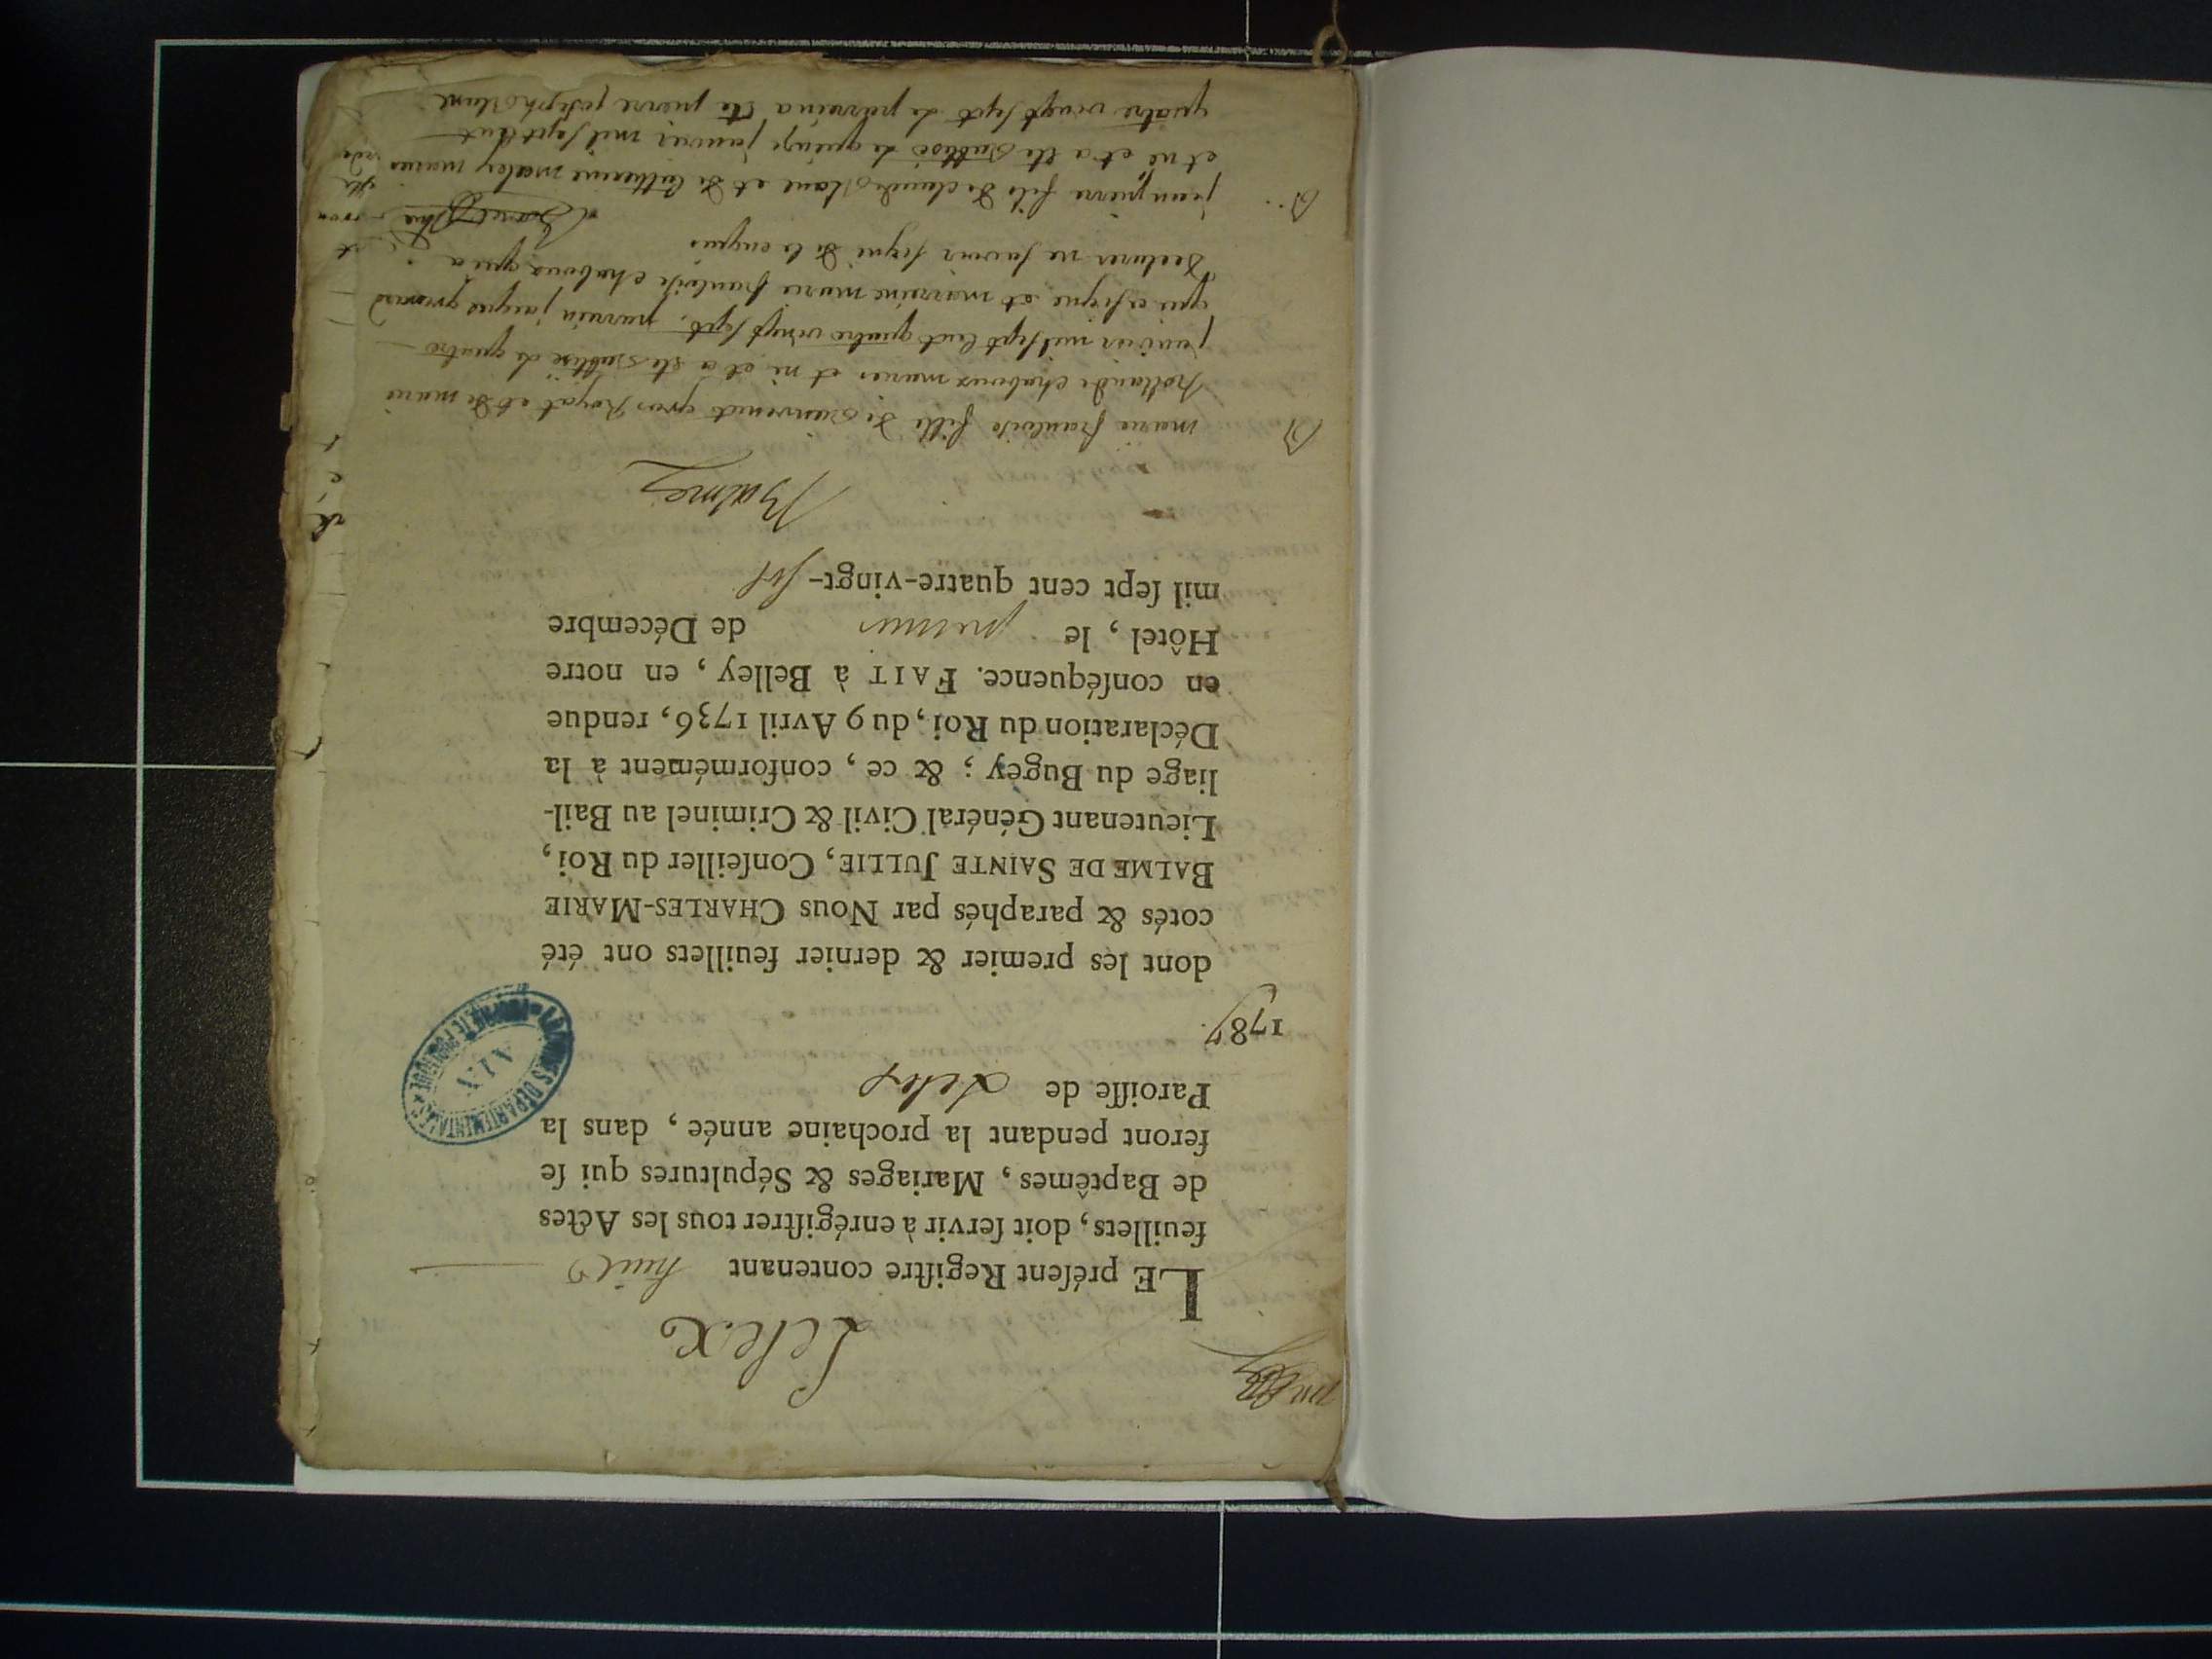 Lelex
LE préſent Regiſtre contenant huit
feuillets, doit ſervir à enrégiſtrer tous les Actes
de Baptêmes, Mariages & Sépultures qui ſe
feront pendant la prochaine année, dans la
Paroiſſe de Lelex
1787.
ARCHIVES DÉPARTEMENTALES
AIN
dont les premier & dernier feuillets ont été
cotés & paraphés par Nous CHARLES-MARIE
BALME DE SAINTE JULLIE, Conſeiller du Roi,
Lieutenant Général Civil & Criminel au Bail-
liage du Bugey ; & ce, conformément à la
Déclaration du Roi, du 9 Avril 1736, rendue
en conſéquence. FAIT à Belley, en notre
Hôtel, le premier de Décembre
mil ſept cent quatre-vingt-six
Balme
B marie francoise fille de gros et de marie
rollande chaboux maries et ne et a ete Battise le quatre
janvier mil sept cent quatre vingt sept, parrain jacques grenard
qui a signe et marraine marie francoise chaboux qui a
declarer ne savoir signé de ce enquis
B jean pierre fils de claude et de Catherine maries
et né et a ete Battisé le quinze janvier mil sept cent
quatre vingt sept le parrain a ete pierre joseph